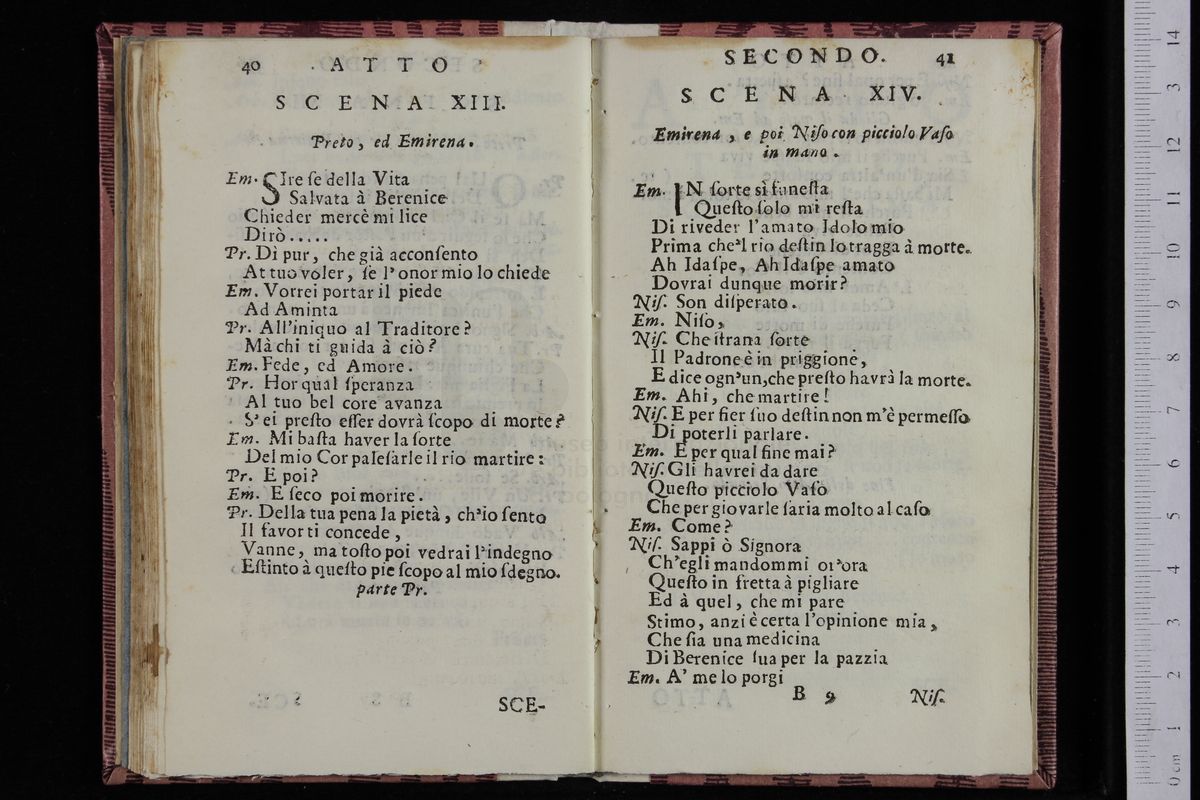 40 ATTO
SCENA XIII.
Preto, ed Emirena.
Em. SIre ſe della Vita
Salvata à Berenice
Chieder mercè mi lice
Dirò.....
Pr. Dì pur, che già acconſento
At tuo voler, ſe l'onor mio lo chiede
Em. Vorrei portar il piede
Ad Aminta
Pr. All'iniquo al Traditore?
Mà chi ti guida à ciò?
Em. Fede, ed Amore.
Pr. Hor qual ſperanza
Al tuo bel core avanza
S'ei preſto eſſer dovrà ſcopo di morte?
Em. Mi baſta haver la ſorte
Del mio Cor paleſarle il rio martire:
Pr. E poi?
Em. E ſeco poi morire.
Pr. Della tua pena la pietà, ch'io ſento
Il favor ti concede,
Vanne, ma toſto poi vedrai l'indegno
Eſtinto à queſto piè ſcopo al mio ſdegno.
parte Pr.
SCE-
SECONDO. 41
SCENA XIV.
Emirena, e poi Niſo con picciolo Vaſo
in mano.
Em. IN ſorte sì funeſta
Queſto ſolo mi reſta
Di riveder l'amato Idolo mio
Prima che'l rio deſtin lo tragga à morte.
Ah Idaſpe, Ah Idaſpe amato
Dovrai dunque morir?
Niſ. Son diſperato.
Em. Niſo,
Niſ. Che ſtrana ſorte
Il Padrone è in priggione,
E dice ogn'un, che preſto havrà la morte.
Em. Ahi, che martire!
Niſ. E per fier ſuo deſtin non m'è permeſſo
Di poterli parlare.
Em. E per qual fine mai?
Niſ. Gli havrei da dare
Queſto picciolo Vaſo
Che per giovarle ſaria molto al caſo
Em. Come?
Niſ. Sappi ò Signora
Ch'egli mandommi or'ora
Queſto in fretta à pigliare
Ed à quel, che mi pare
Stimo, anzi è certa l'opinione mia,
Che ſia una medicina
Di Berenice ſua per la pazzia
Em. A' me lo porgi
B 9 Niſ.